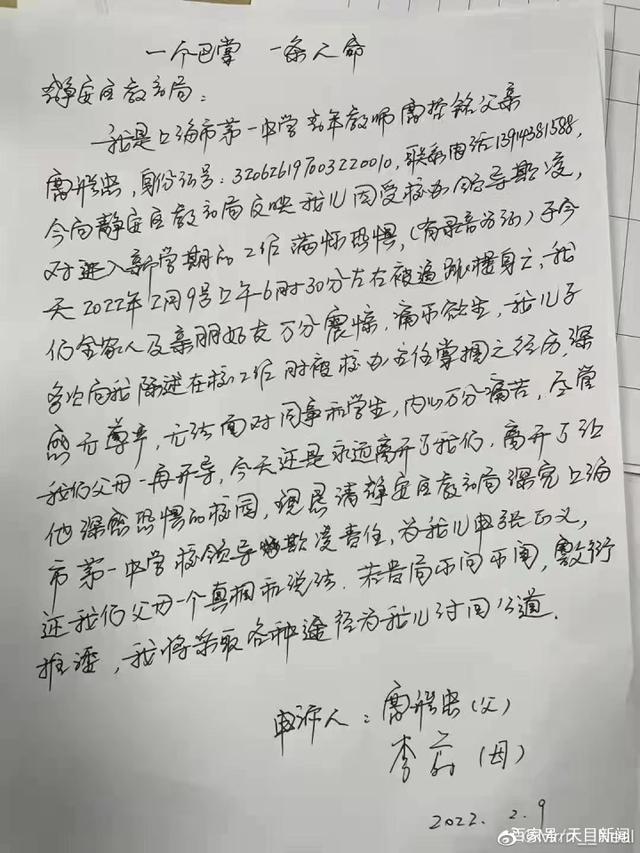 一个巴掌 一条人命
静安区教育局:
我是上海市第一中学青年教师席哲铭父亲
身份证号:320626197003220010,联系电话13914381588,
今向静安区教育局反映我儿因受校办领导欺凌,
对进入新学期的工作满怀恐惧,(有录音为证)于今
天2022年2月9号上午6时30分左右被逼跳楼身亡,我
们全家人及亲朋好友万分震惊,痛不欲生,我儿子
多次向我陈述在校工作时被校办主任掌掴之经历,深
感无尊严,无法面对同事和学生,内心万分痛苦,尽管
我们父母一再开导,今天还是永远离开了我们,离开了让
他深感恐惧的校园,现恳请静安区教育局深究上海
市第一中学校领导欺凌责任,为我儿申张正义,
还我们父母一个真相和说法.若贵局不问不闻,敷衍
推诿,我将采取各种途径为我儿讨回公道.
申诉人:(父)
李 (母)
2022.2.9
百家号/天目新闻